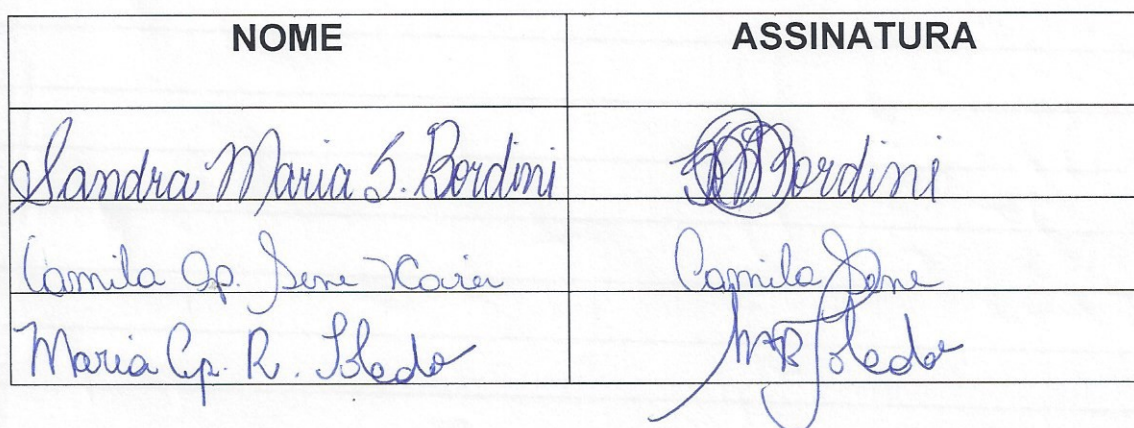 NOME ASSINATURA
Sandra Maria S. Bordini Bordini
Camila Ap. Sene Xavier Camila Sene
Maria Ap. R. Toledo MAR Toledo